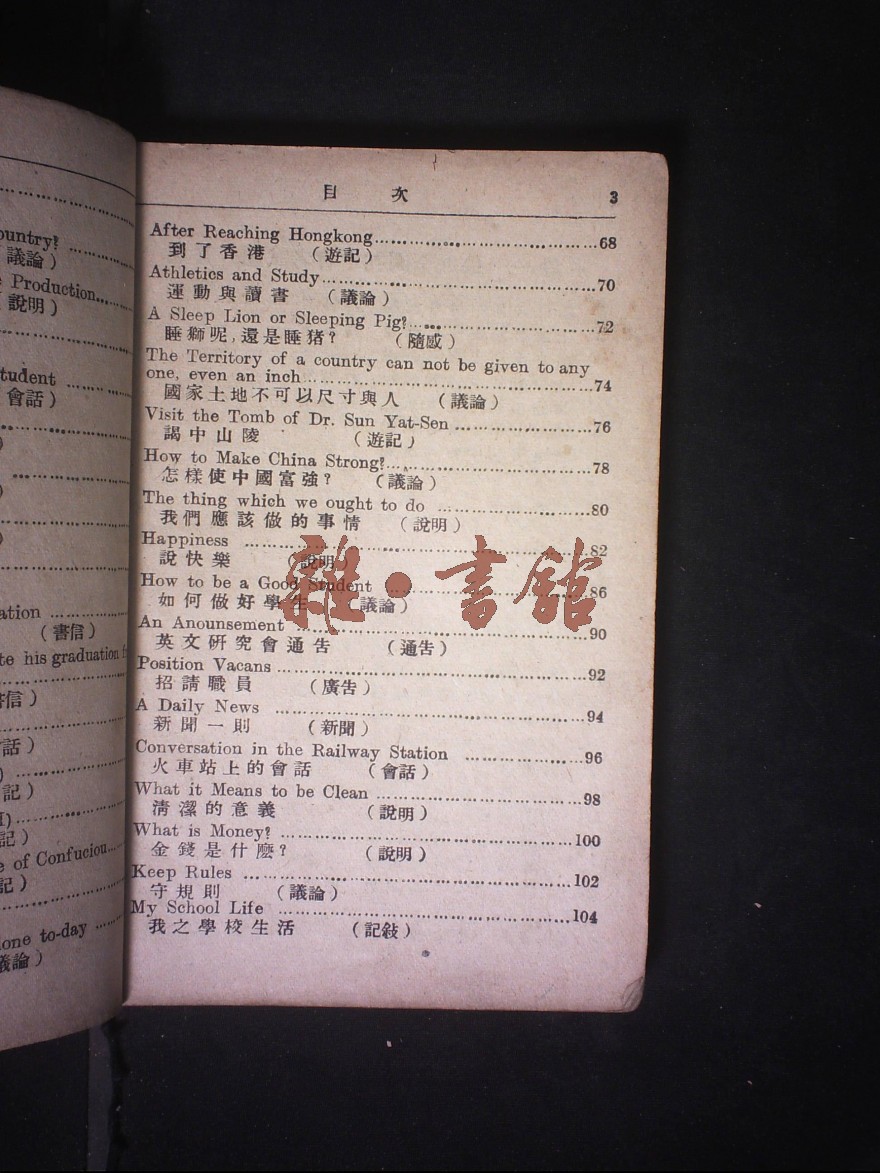 ountry?
議論）
Production
說明）
tudent
會話）
ation
（書信）
te his graduation f
書信）
話）
記）
記）
e of Confuciou
記）
one to-day
議論）
目 次 3
After Reaching Hongkong 68
到了香港 （遊記）
Athletics and Study 70
運動與讀書 （議論）
A Sleep Lion or Sleeping Pig? 72
睡獅呢，還是睡猪？ （隨感）
The Territory of a country can not be given to any
one, even an inch 74
國家土地不可以尺寸與人 （議論）
Visit the Tomb of Dr. Sun Yat-Sen 76
謁中山陵 （遊記）
How to Make China Strong? 78
怎樣使中國富強？ （議論）
The thing which we ought to do 80
我們應該做的事情 （說明）
Happiness 82
說快樂 （說明
How to be a Good Student 86
如何做好學生 （議論）
An Anounsement 90
英文研究會通告 （通告）
Position Vacans 92
招請職員 （廣告）
A Daily News 94
新聞一則 （新聞）
Conversation in the Railway Station 96
火車站上的會話 （會話）
What it Means to be Clean 98
淸潔的意義 （說明）
What is Money? 100
金錢是什麼？ （說明）
Keep Rules 102
守規則 （議論）
My School Life 104
我之學校生活 （記敍）
雜·書館